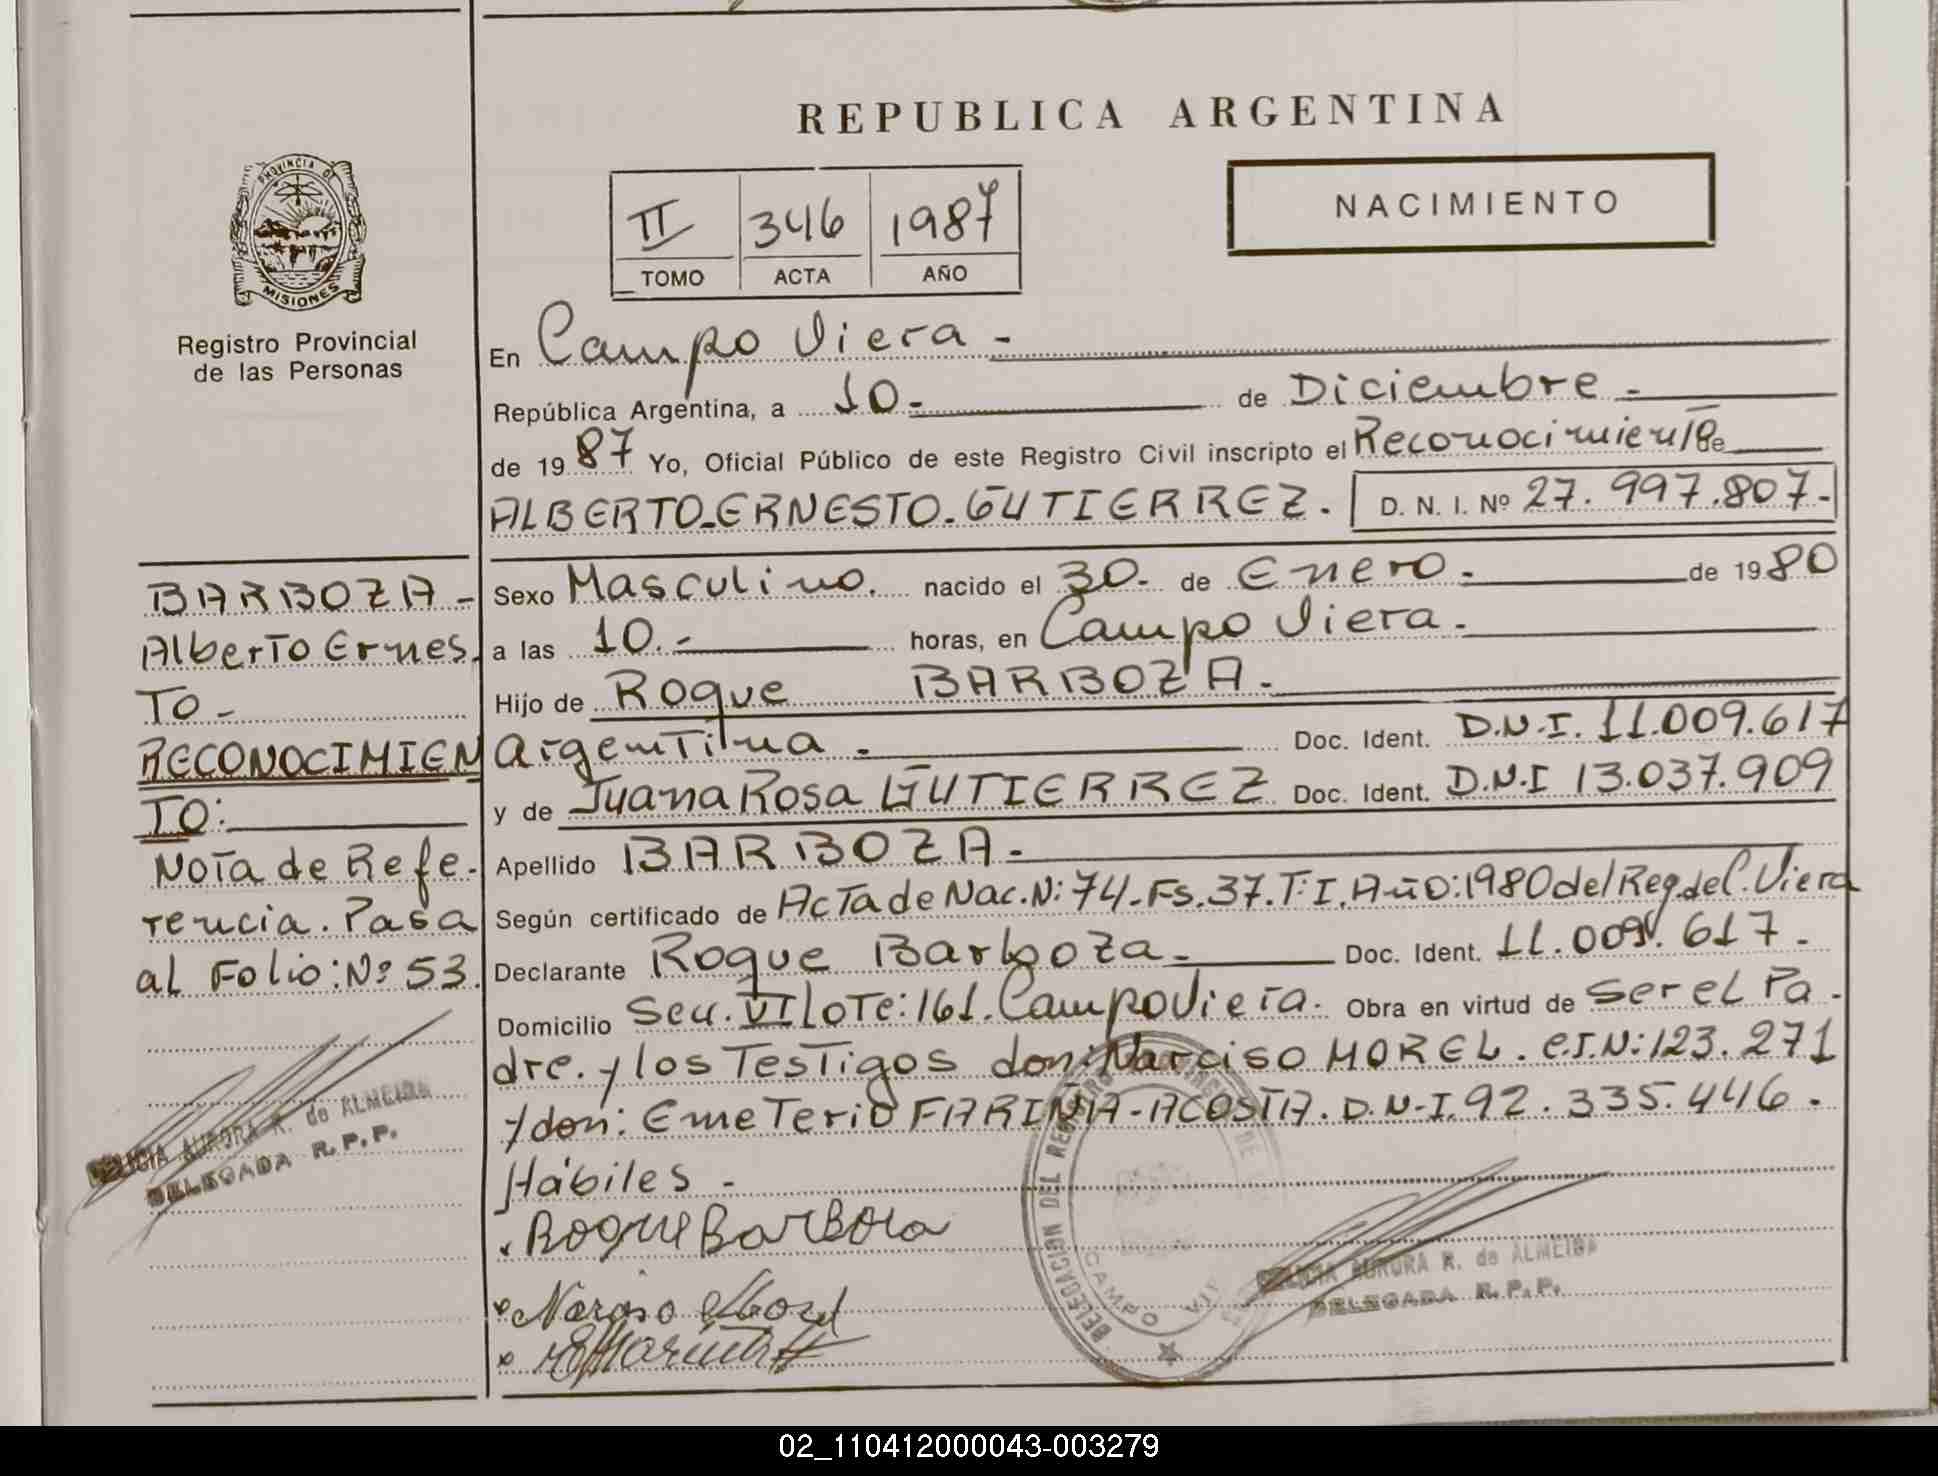 REPUBLICA ARGENTINA
PROVINCIA DE
MISIONES
Registro Provincial
de las Personas
II 346 1987
TOMO ACTA AÑO
NACIMIENTO
En Campo Viera -
República Argentina, a 10.- de Diciembre -
de 1987 Yo, Oficial Público de este Registro Civil inscripto el Reconocimiento de
ALBERTO-ERNESTO-GUTIERREZ. D. N. I. Nº 27.997.807.-
Sexo Masculino. nacido el 30.- de Enero.- de 1980
a las 10.- horas, en Campo Viera.-
Hijo de Roque BARBOZA.-
Argentina.- Doc. Ident. D.N.I. 11.009.617
y de Juana Rosa GUTIERREZ Doc. Ident. D.N.I 13.037.909
Apellido BARBOZA.-
Según certificado de Acta de Nac.N:74-Fs.37.T:I.Año:1980 del Reg.del C.Viera
Declarante Roque Barboza.- Doc. Ident. 11.009.617.-
Domicilio Secc. VI Lote:161.Campo Viera. Obra en virtud de Ser el Pa-
dre. y los Testigos don:Narciso MOREL. C.I.N:123.271
y don: Emeterio FARIÑA-ACOSTA. D.N-I.92.335.446.-
Hábiles -
Roque Barboza
Narciso Morel
BARBOZA -
Alberto Ernes-
To -
RECONOCIMIEN
TO:
Nota de Refe-
rencia. Pasa
al Folio:Nº 53.
AURORA R. de ALMEIDA
DELEGADA R.P.P.
DELEGACION DEL REGISTRO
CAMPO VIE
AURORA R. de ALMEIDA
DELEGADA R.P.P.
02_110412000043-003279